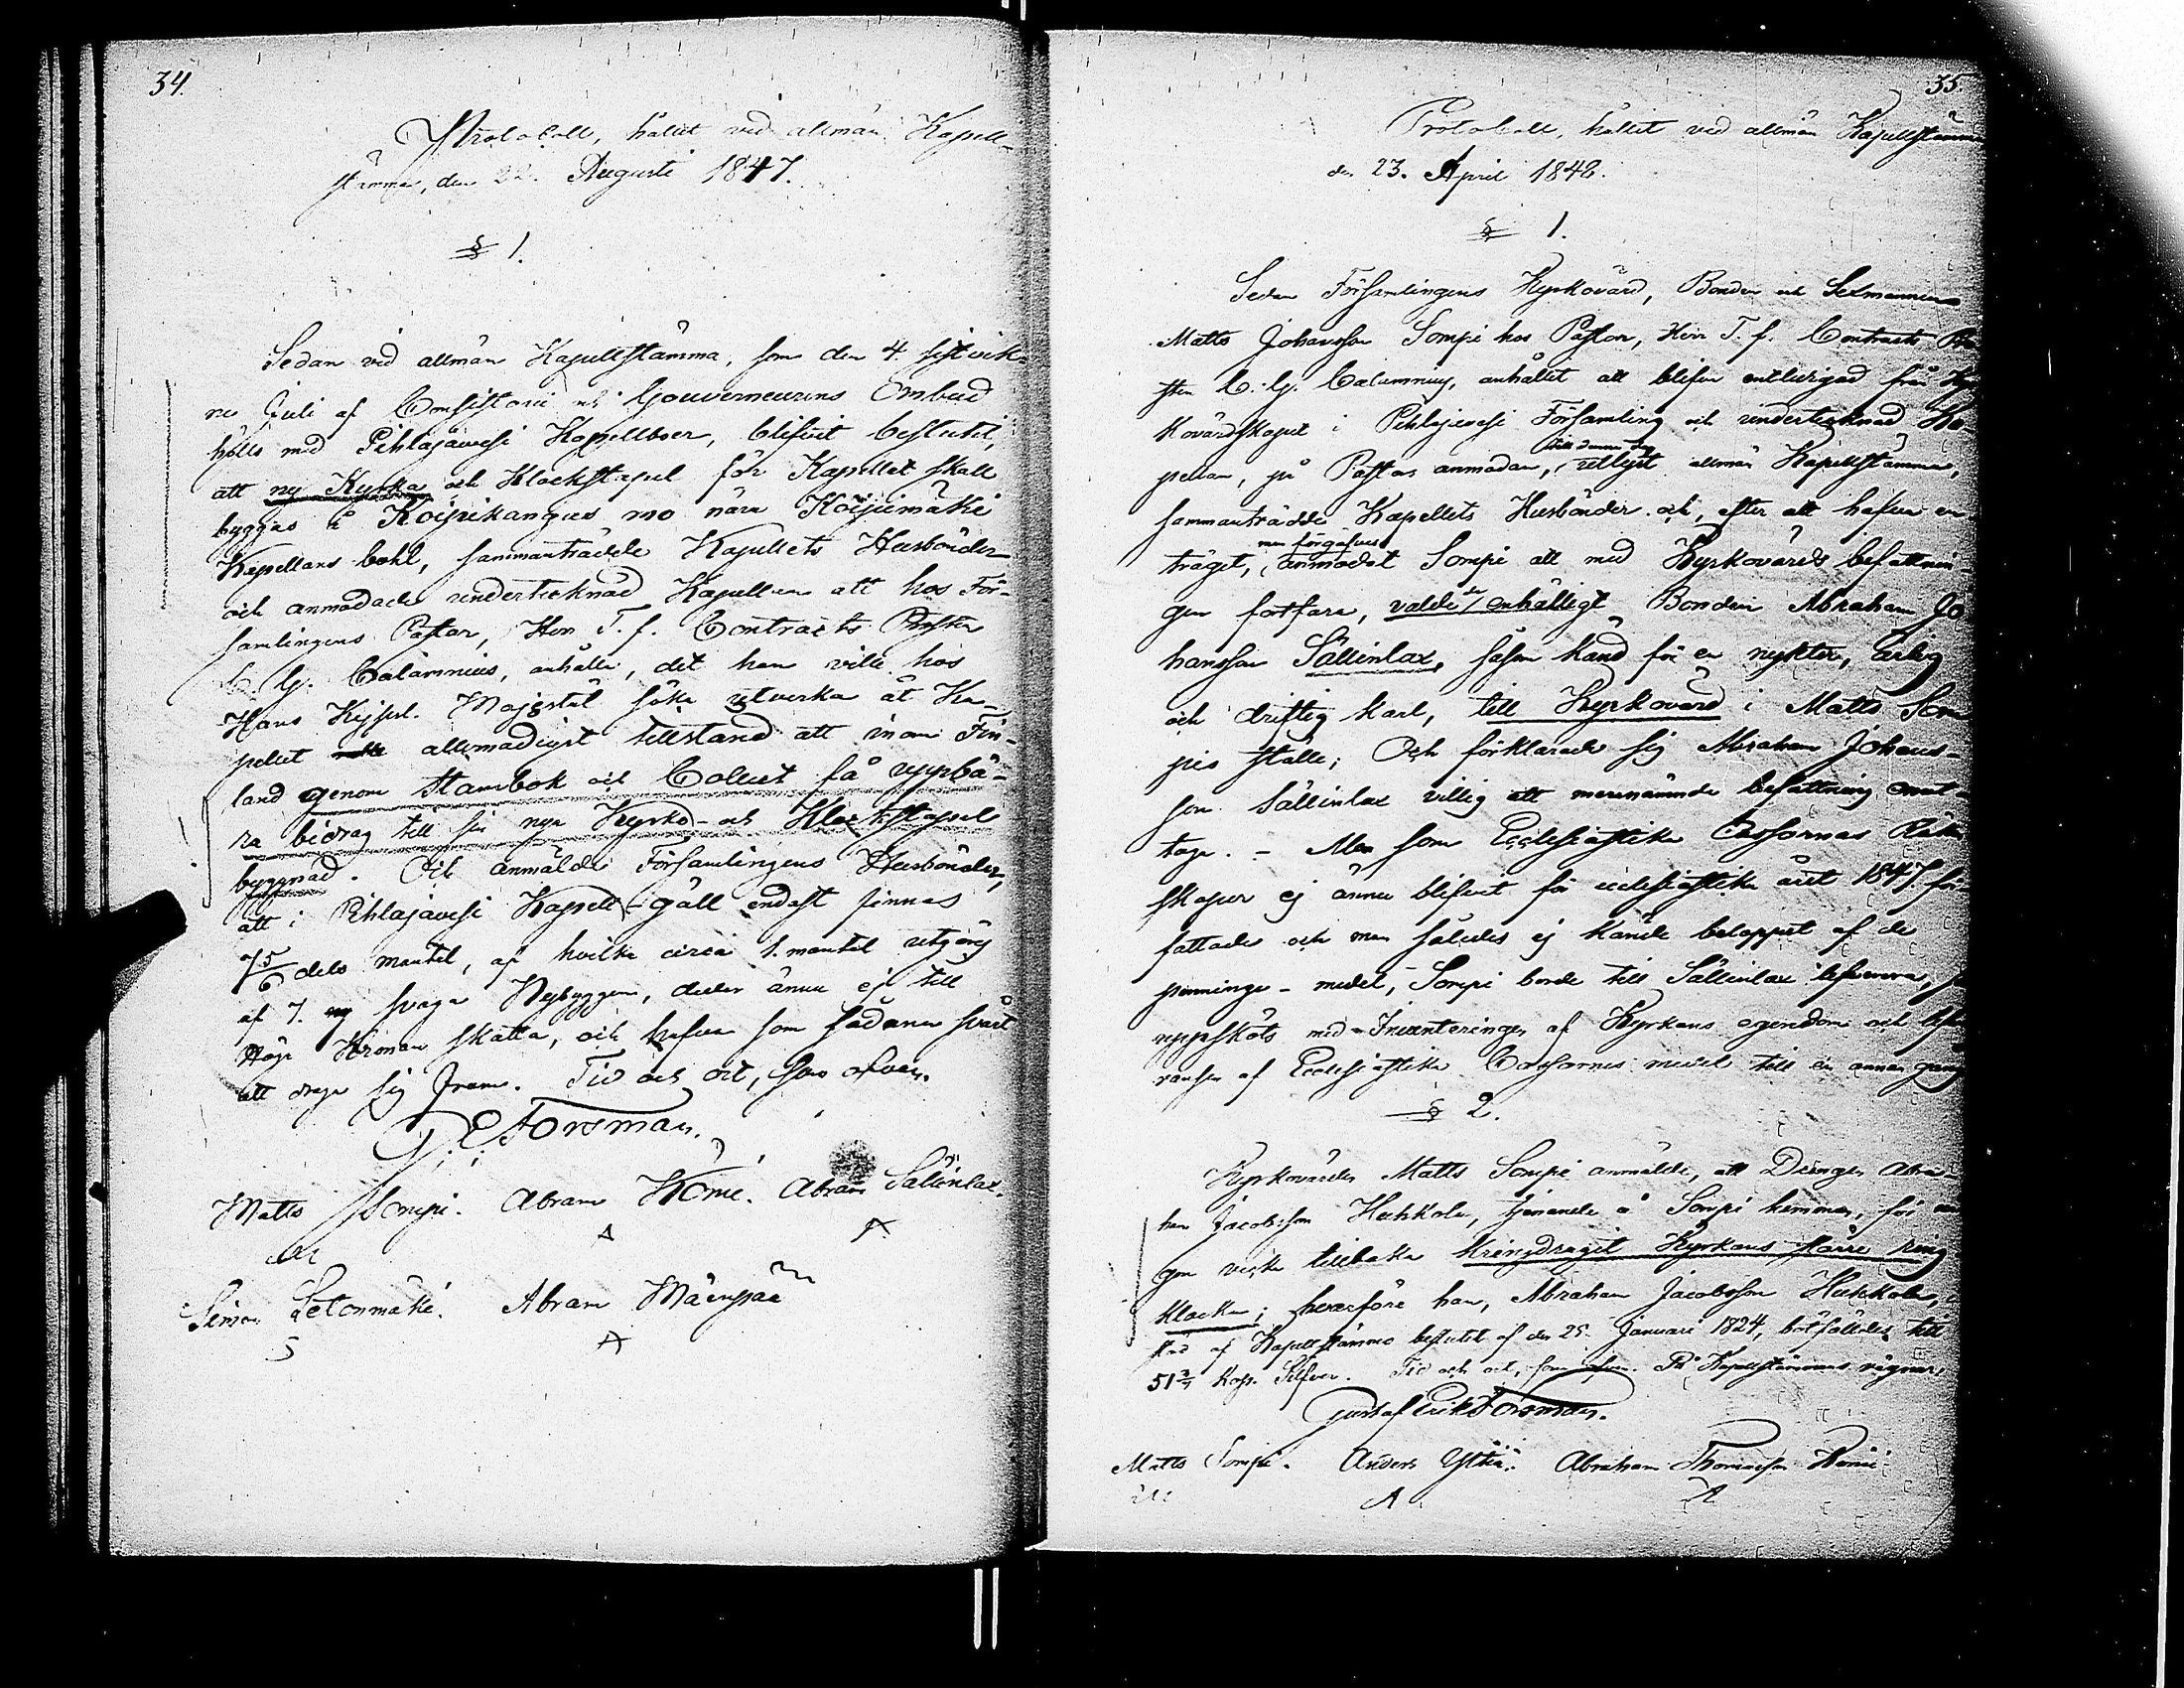 34.
Protocoll, hållet vid allmän Kapell-
stämma, den 22. Augusti 1847.
§ 1.
Sedan vid allmän Kapellstämma, som den 4. sistvik-
ne Juli af Consistorii och Gouverneurens Ombud
hölls med Pihlajavesi Kapellboer, blifvit beslutit,
att ny Kyrka och Klockstapel för Kapellet skall
byggas å Köijrikangas mo nära Köijrimäki
Kapellans bohl, sammanträdde Kapellets Husbönder
och anmodade undertecknad Kapellan att hos För-
samlingens Pastor, Herr T. f. Contracts Prosten
C. G. Calamnius, anhålla, det han ville hos
Hans Kejserl. Majestät söka utverka åt Ka-
pellet allernådigst tillstånd att inom Fin-
land genom Stambok och Collect få uppbä-
ra bidrag till sin nya Kyrko- och Klockstapels
byggnad. Och anmälde Församlingens Husbönder,
att i Pihlajavesi Kapell-gäll endast finnas
7 5/6 dels mantel, af hvilka circa 1. mantel utgörs
af 7. ny svaga Nybyggen, dessa ännu ej till
Höga Kronan skatta, och hafva som sådana svårt
att draga sig fram. Tid och ort, som ofvan.
G. E. Forsman.
Matts Sompi. Abram Kömi. Abram Sällinlax.
A A
Simon Letonmäki. Abram Mäenpää
S A
35.
Protocoll, hållit vid allmän Kapellstämma
den 23. April 1848.
§ 1.
Sedan Församlingens Kyrkovärd, Bonden och Sexmannen
Matts Johansson Sompi hos Pastor, Herr T. f. Contracts Pro-
sten C. G. Calamnius, anhållit att blifva entledigad från Kyr-
kovärdskapet i Pihlajavesi Församling och undertecknad Ka-
pellan, på Pastors anmodan, till denna dag utlyst allmän Kapellstämma,
sammanträdde Kapellets Husbönder och, efter att hafva en-
träget, men förgäfves anmodat Sompi att med Kyrkovärds befattnin-
gen fortfara, valde de enhälligt Bonden Abraham Jo-
hansson Sällinlax, såsom känd för en nykter, ärlig
och driftig karl, till Kyrkovärd i Matts Som-
pis ställe; Och förklarade sig Abraham Johans-
son Sällinlax villig att merenämnde befattning emot-
taga. - Men som Ecclesiastike Cassornas Räken-
skaper ej ännu blifvit för ecclesiastike året 1847 för-
fattade och man således ej kände beloppet af de
penninge-medel, Sompi borde till Sällinlax lefverera,
uppsköts med Inventeringen af Kyrkans egendom och lefve-
ransen af Ecclesiastike Cassornes medel till en annan gång
§ 2.
Kyrkovärden Matts Sompi anmälde, att Drängen Abra-
ham Jacobsson Hukkola, tjenande å Sompi hemman, för
gen vecka tillbaka kringdragit Kyrkans större ring-
klocka; hvarföre han, Abraham Jacobsson Hukkola,
stöd af Kapellstämmo beslutet af den 25. Januari 1824, bötfälldes till
51 3/7 Kop. Silfver. Tid och ort, som ofvan. På Kapellstämmans vägnar:
Gustaf Erik Forsman.
Matts Sompi. Anders Ylihä. Abraham Thomasson Kömi.
A A